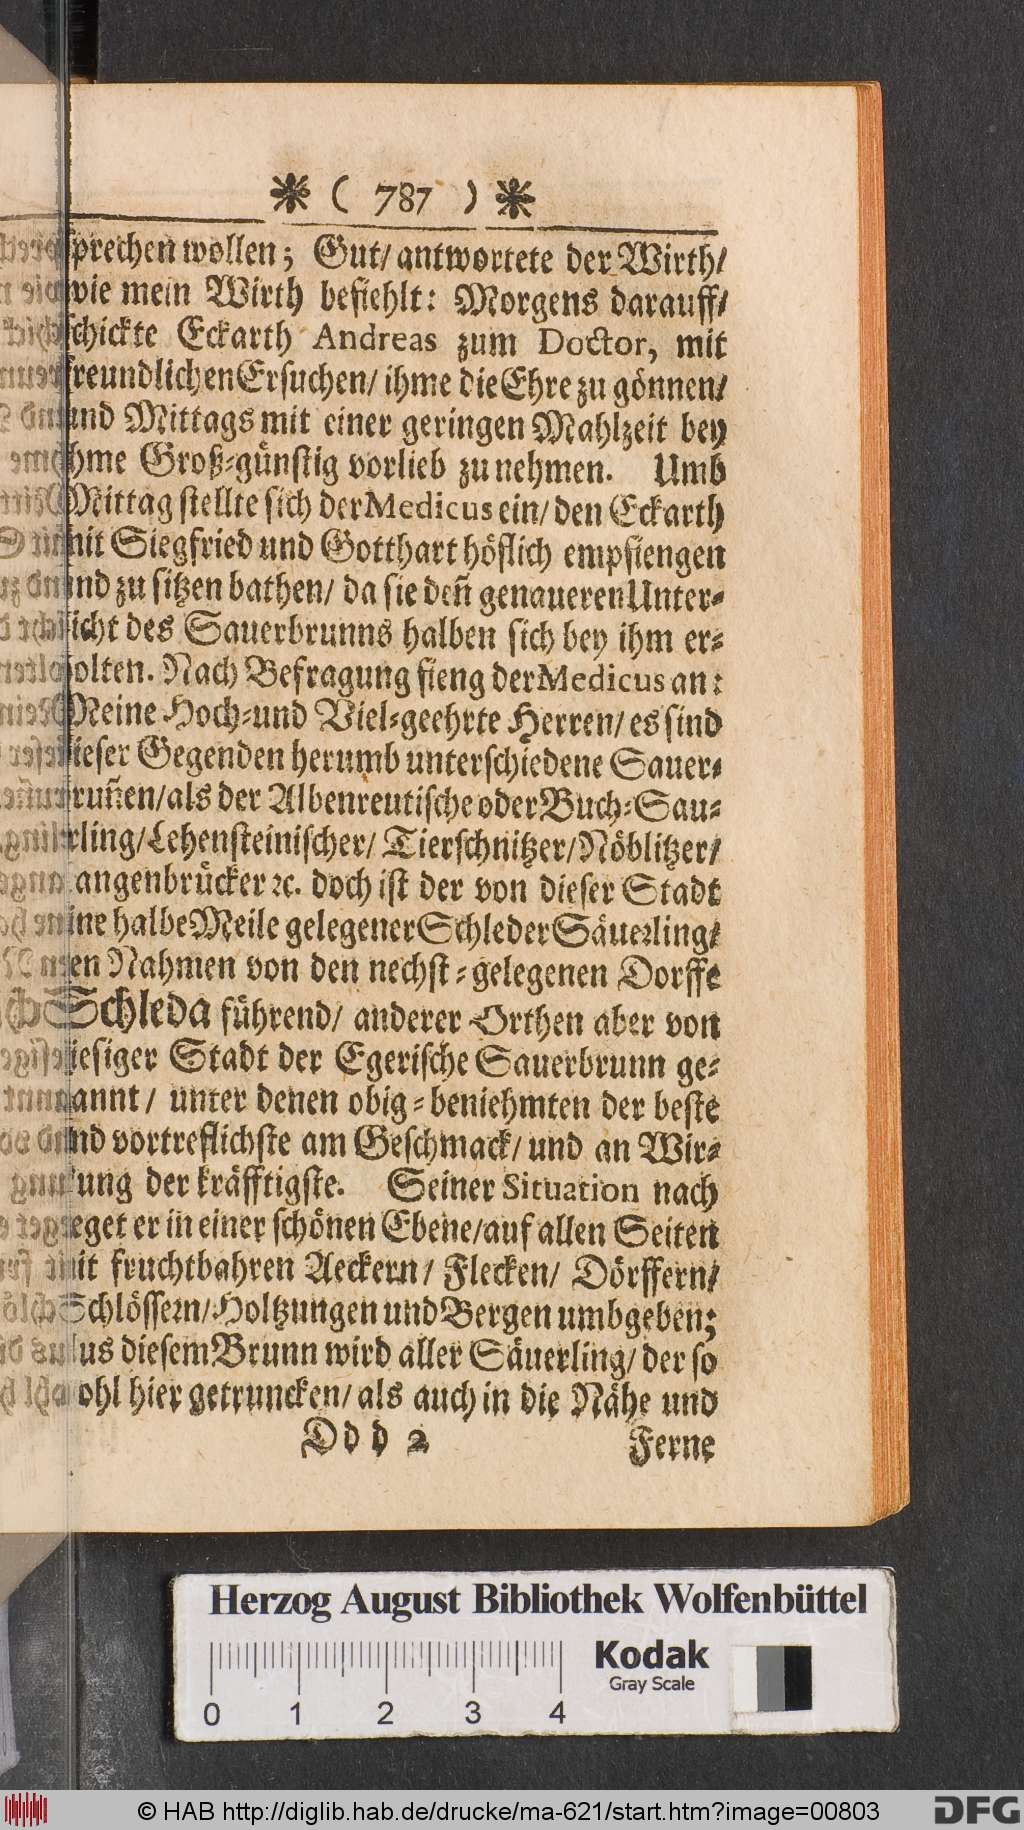 ❋ ( 787 ) ❋
sprechen wollen; Gut/ antwortete der Wirth/
wie mein Wirth befiehlt: Morgens darauff/
schickte Eckarth Andreas zum Doctor, mit
freundlichen Ersuchen/ ihme die Ehre zu gönnen/
und Mittags mit einer geringen Mahlzeit bey
ihme Groß-günstig vorlieb zu nehmen. Umb
Mittag stellte sich der Medicus ein/ den Eckarth
mit Siegfried und Gotthart höflich empfiengen
und zu sitzen bathen/ da sie deñ genaueren Unter-
richt des Sauerbrunns halben sich bey ihm er-
holten. Nach Befragung fieng der Medicus an:
Meine Hoch-und Viel-geehrte Herren/ es sind
dieser Gegenden herumb unterschiedene Sauer-
bruñen/ als der Albenreutische oder Buch-Säu-
erling/ Lehensteinischer/ Tierschnitzer/ Nöblitzer/
Langenbrücker ꝛc. doch ist der von dieser Stadt
eine halbe Meile gelegener Schleder Säuerling/
den Nahmen von den nechst-gelegenen Dorffe
Schleda führend/ anderer Orthen aber von
hiesiger Stadt der Egerische Sauerbrunn ge-
nannt/ unter denen obig-beniehmten der beste
und vortreflichste am Geschmack/ und an Wir-
ckung der kräfftigste. Seiner Situation nach
lieget er in einer schönen Ebene/ auf allen Seiten
mit fruchtbahren Aeckern/ Flecken/ Dörffern/
Schlössern/ Holtzungen und Bergen umbgeben;
aus diesem Brunn wird aller Säuerling/ der so
wohl hier getruncken/ als auch in die Nähe und
Ddd 2 Ferne
Herzog August Bibliothek Wolfenbüttel
0 1 2 3 4
Kodak
Gray Scale
© HAB http://diglib.hab.de/drucke/ma-621/start.htm?image=00803
DFG